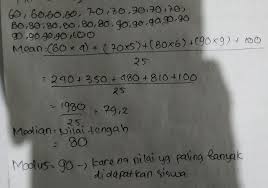 60, 60, 60, 60, 70, 70, 70, 70, 70,
80, 80, 80, 80, 80, 80, 90, 90, 90, 90, 90
90, 90, 90, 90, 100
Mean: (60 x 4) + (70x5) + (80x6) + (90x9) + 100
25
= 240 + 350 + 480 + 810 + 100
25
= 1980 = 79,2
25
Median: nilai tengah
= 80
Modus = 90 -> karena nilai yg paling banyak
didapatkan siswa